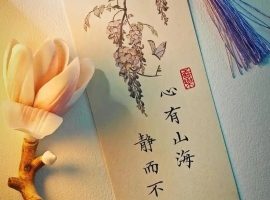 心有山海
静而不